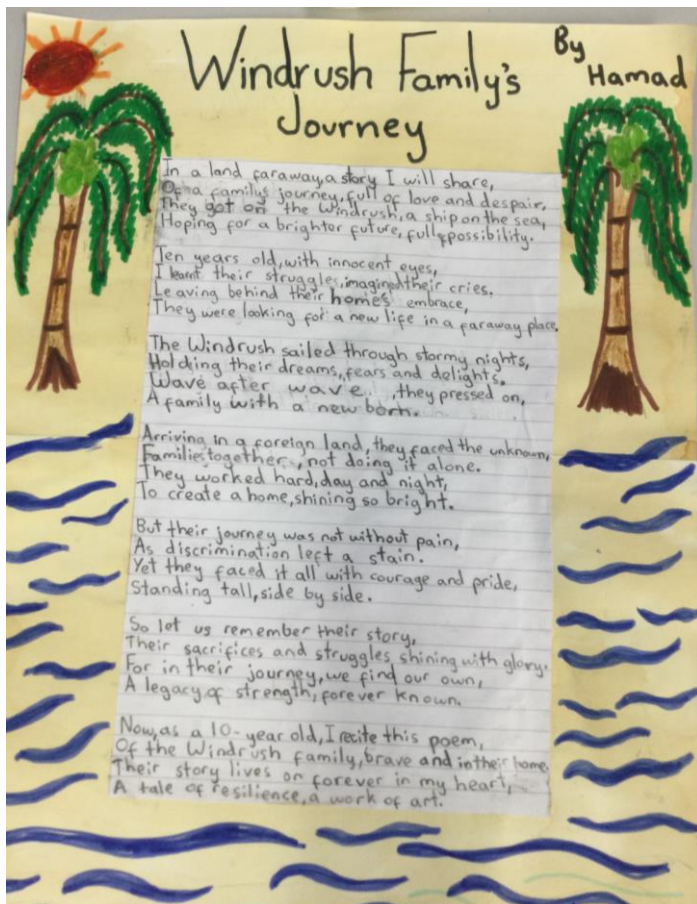 Windrush Family's
Journey
By
Hamad
In a land faraway, a story I will share,
Of a family's journey, full of love and despair,
They got on the Windrush, a ship on the sea,
Hoping for a brighter future, full of possibility.
Ten years old, with innocent eyes,
I learnt their struggles, imagined their cries.
Leaving behind their homes embrace,
They were looking for a new life in a faraway place.
The Windrush sailed through stormy nights,
Holding their dreams, fears and delights.
Wave after wave, they pressed on,
A family with a new born.
Arriving in a foreign land, they faced the unknown,
Families together, not doing it alone.
They worked hard, day and night,
To create a home, shining so bright.
But their journey was not without pain,
As discrimination left a stain.
Yet they faced it all with courage and pride,
Standing tall, side by side.
So let us remember their story,
Their sacrifices and struggles shining with glory.
For in their journey, we find our own,
A legacy of strength, forever known.
Now, as a 10-year old, I recite this poem,
Of the Windrush family, brave and in their home,
Their story lives on forever in my heart,
A tale of resilience, a work of art.